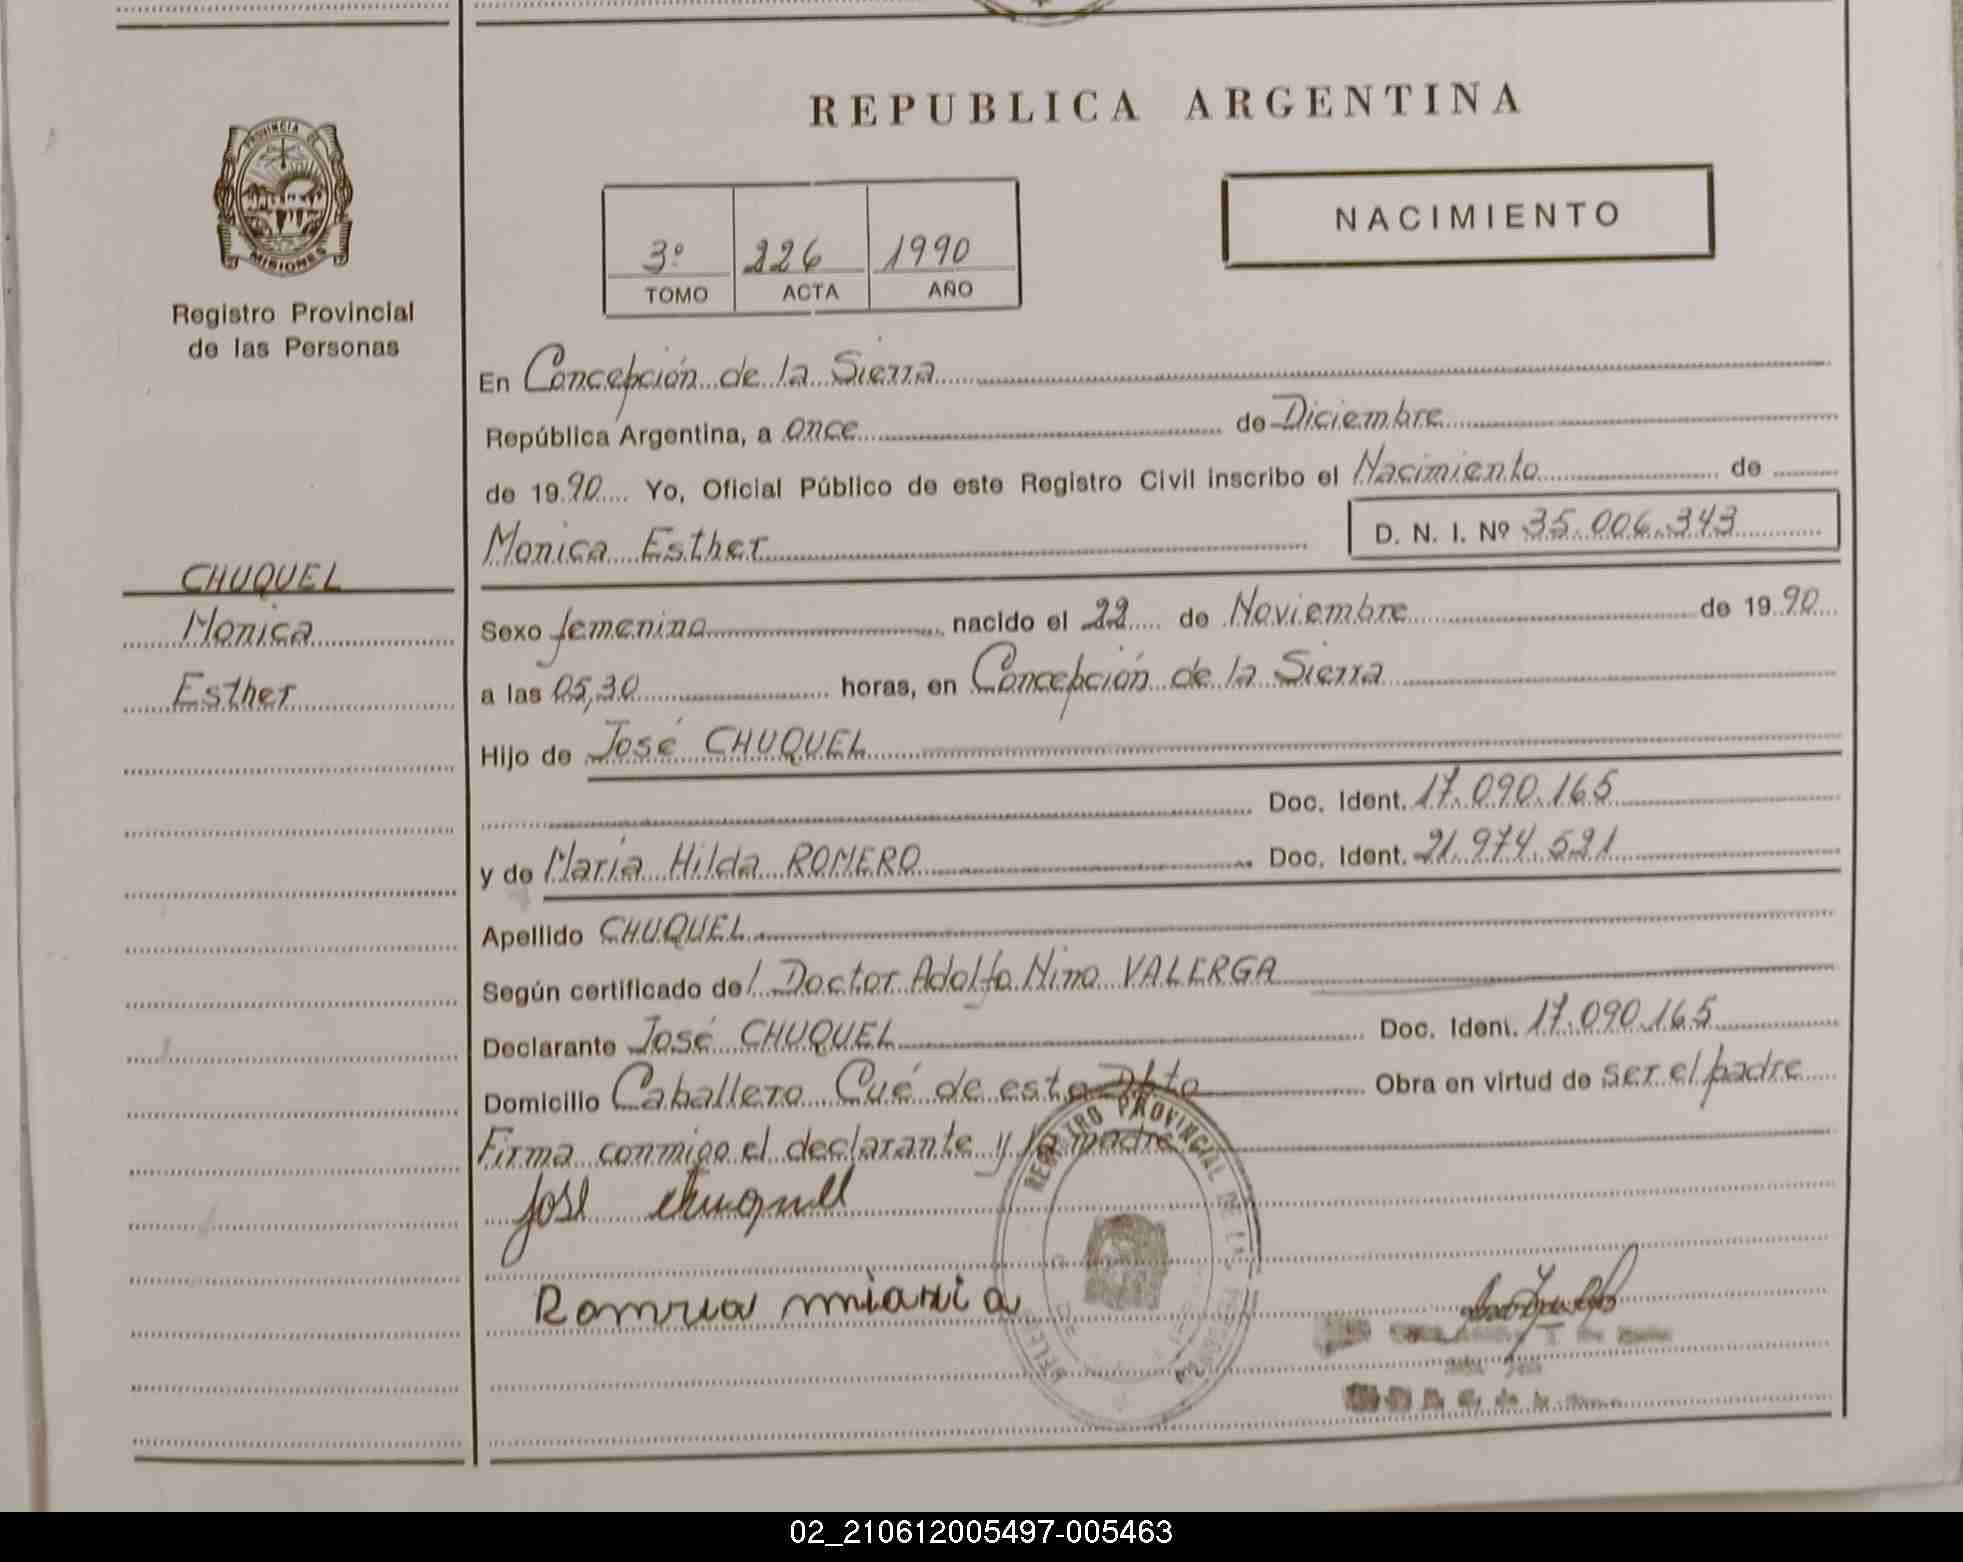 REPUBLICA ARGENTINA
PROVINCIA DE
MISIONES
Registro Provincial
de las Personas
NACIMIENTO
3º 226 1990
TOMO ACTA AÑO
En Concepción de la Sierra
República Argentina, a once de Diciembre
de 1990 Yo, Oficial Público de este Registro Civil inscribo el Nacimiento de
Monica Esther D. N. I. Nº 35.006.343
CHUQUEL
Monica
Esther
Sexo femenino nacido el 22 de Noviembre de 1990
a las 05,30 horas, en Concepción de la Sierra
Hijo de José CHUQUEL
Doc. Ident. 17.090.165
y de María Hilda ROMERO Doc. Ident. 21.974.521
Apellido CHUQUEL
Según certificado del Doctor Adolfo Nino VALERGA
Declarante José CHUQUEL Doc. Ident. 17.090.165
Domicilio Caballero Cué de este Dpto Obra en virtud de ser el padre
Firma conmigo el declarante y la madre
José Chuquel
maria
REGISTRO PROVINCIAL DE LAS PERSONAS
02_210612005497-005463